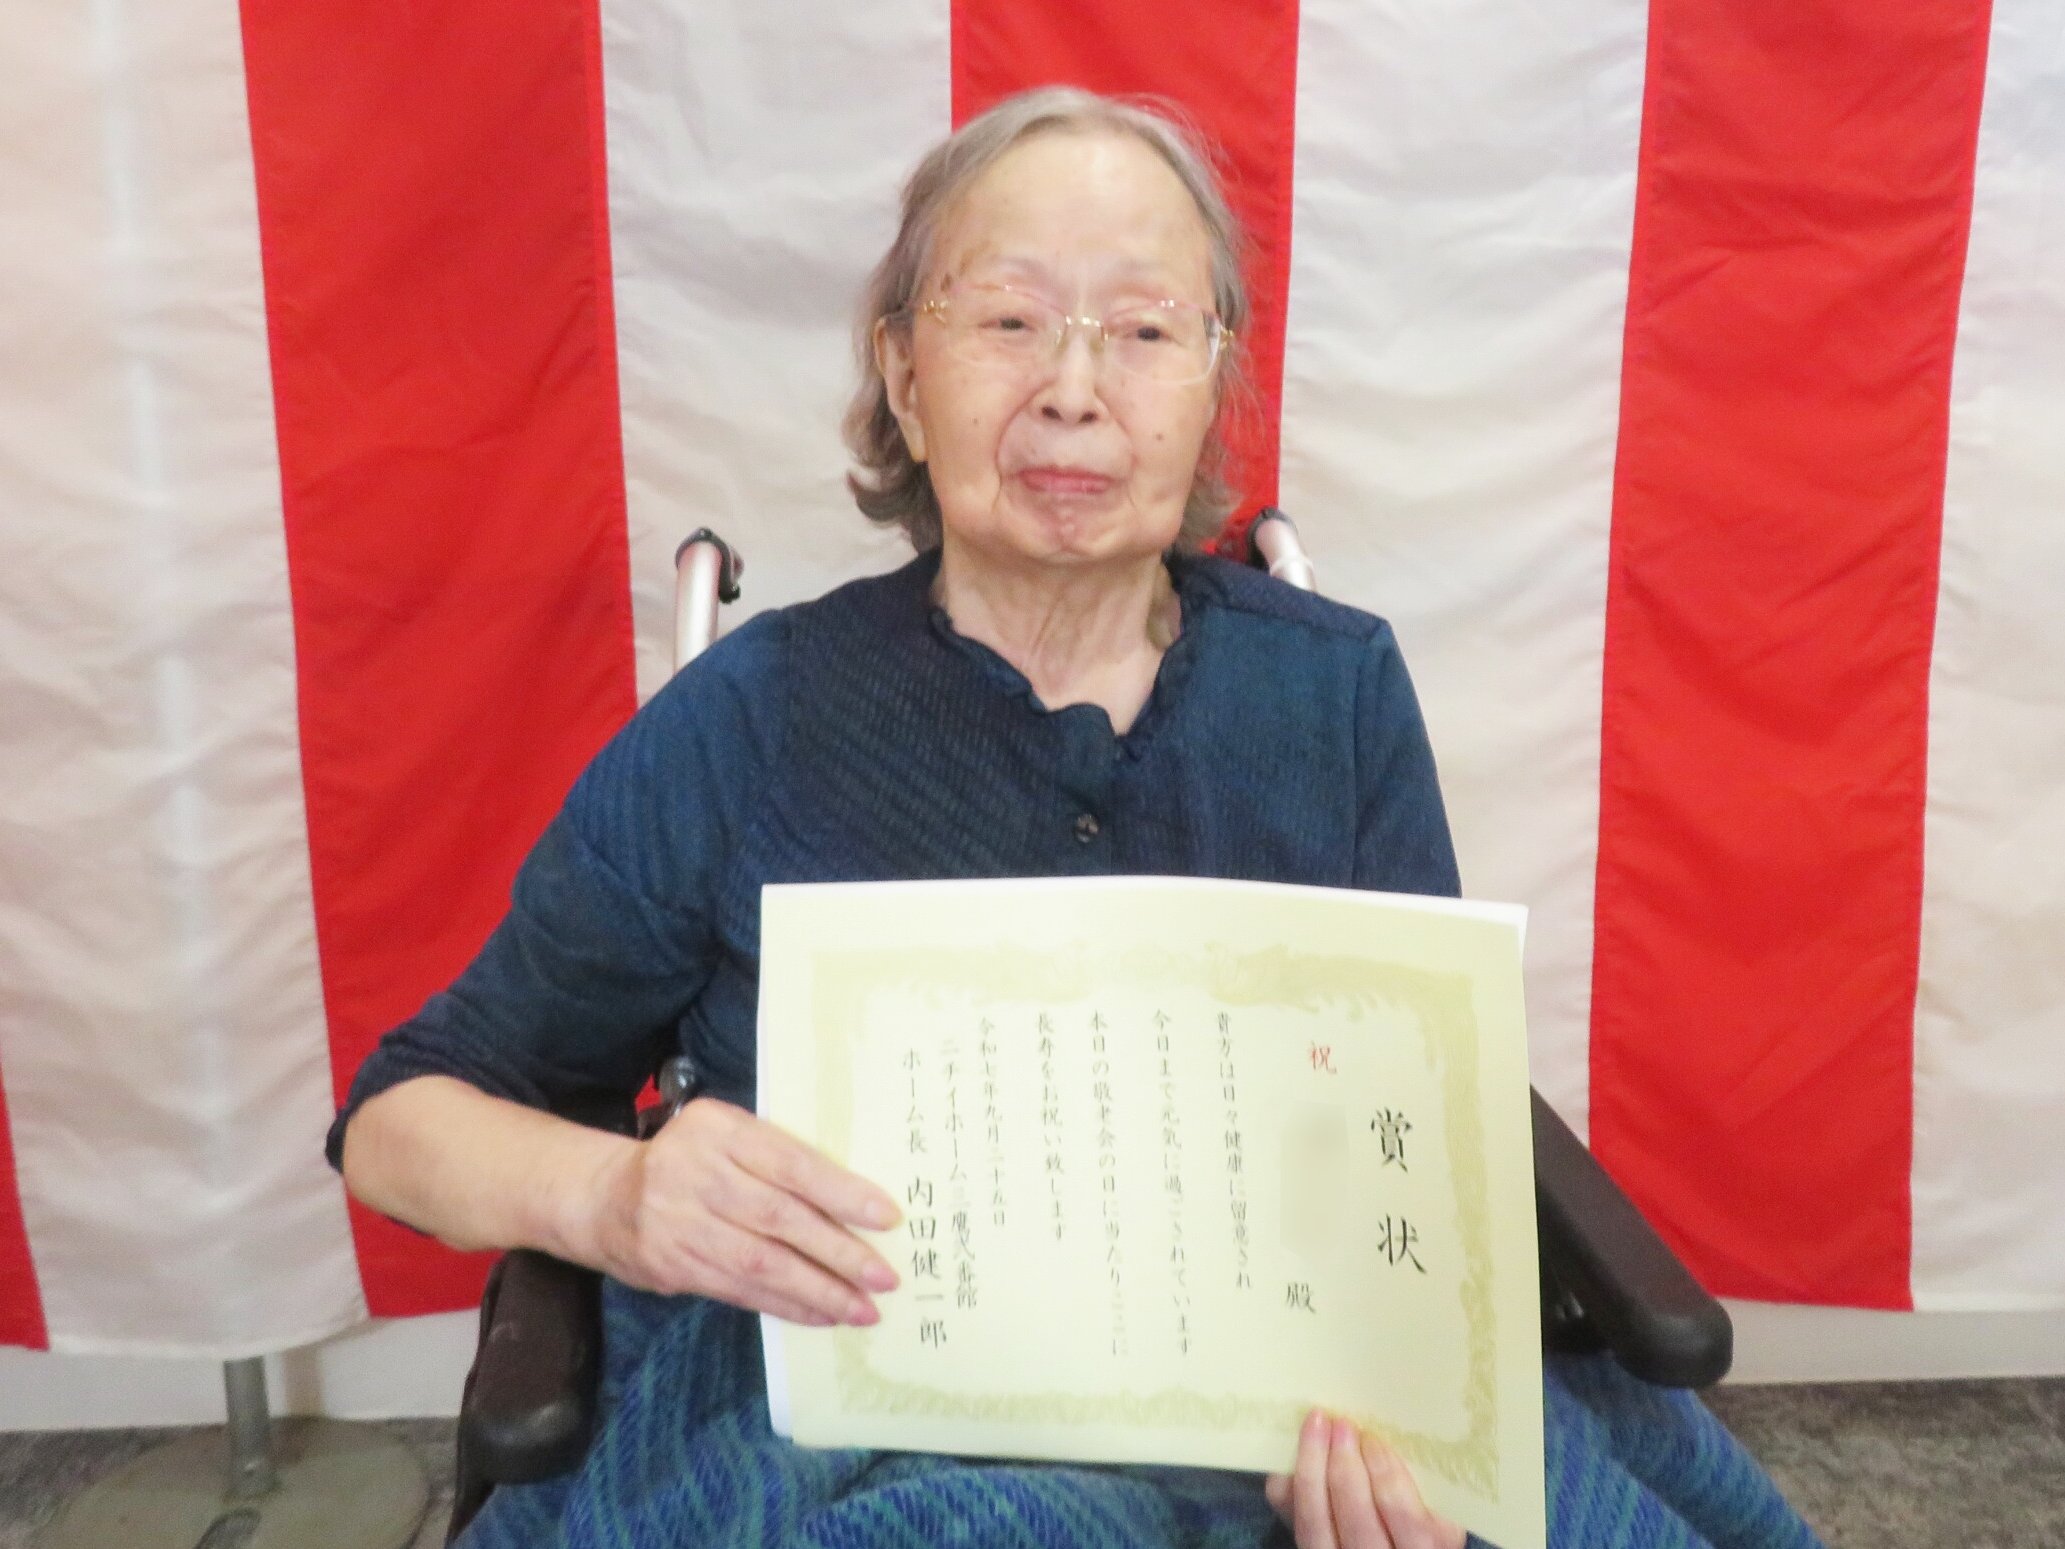 賞状
祝
殿
貴方は日々健康に留意され
今日まで元気に過ごされています
本日の敬老会の日に当たりここに
長寿をお祝い致します
令和七年九月二十五日
ニチイホーム三鷹弐番館
ホーム長 内田健一郎